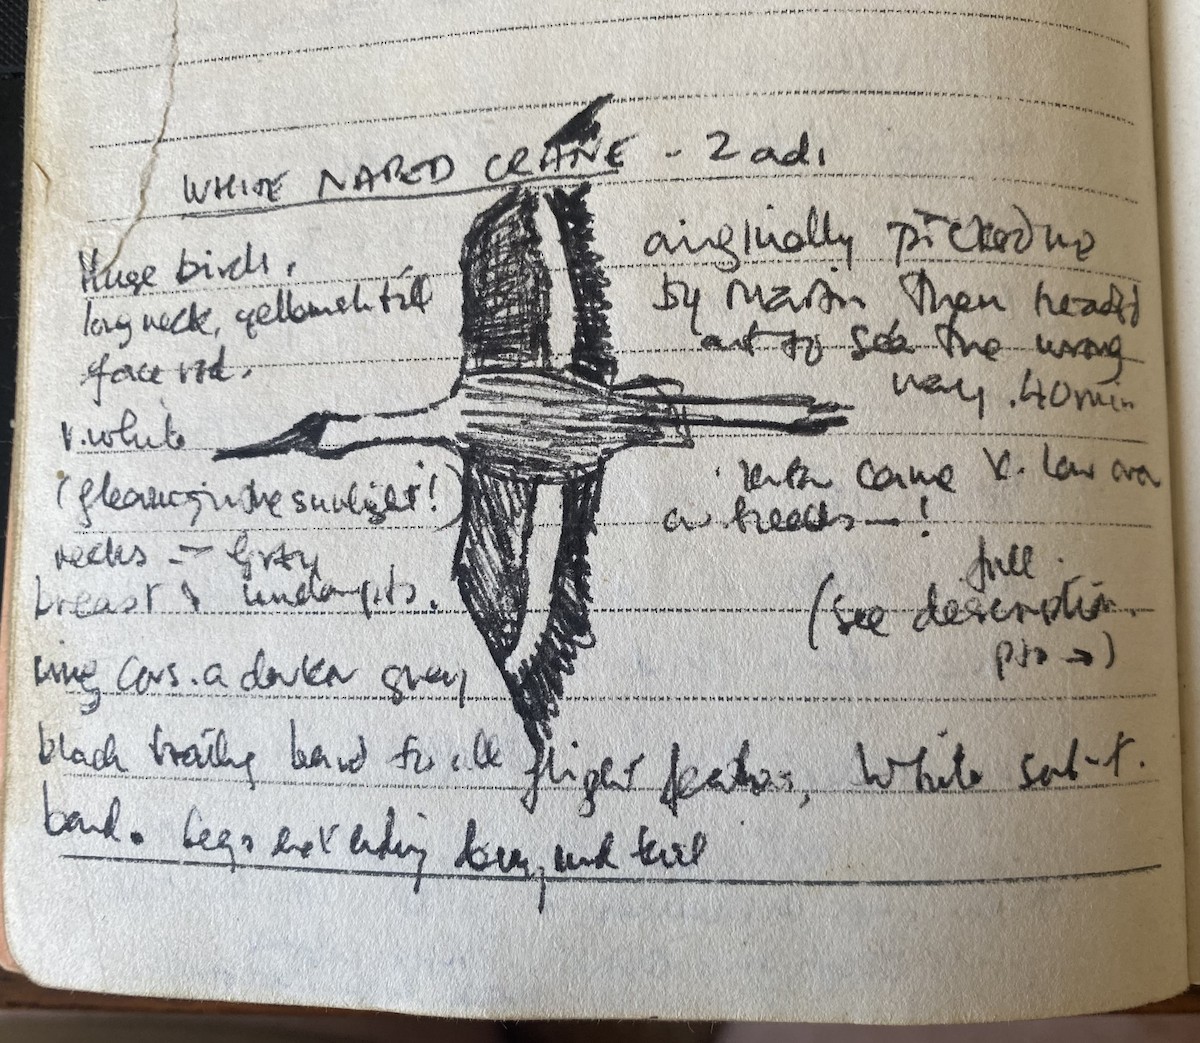 WHITE NAPED CRANE - 2 ad,
Huge birds,
long neck, yellowish bill
face red.
v. white
(gleaming in the sunlight!)
necks - Gray
breast & underpts.
wing covs. a darker grey
black trailing band to all flight feathers, White sub-t.
band. Legs extending beyond tail
originally picked up
by Martin then headed
out to sea the wrong
way. 40min
later came v. low over
our heads - !
full
(see description
pto →)